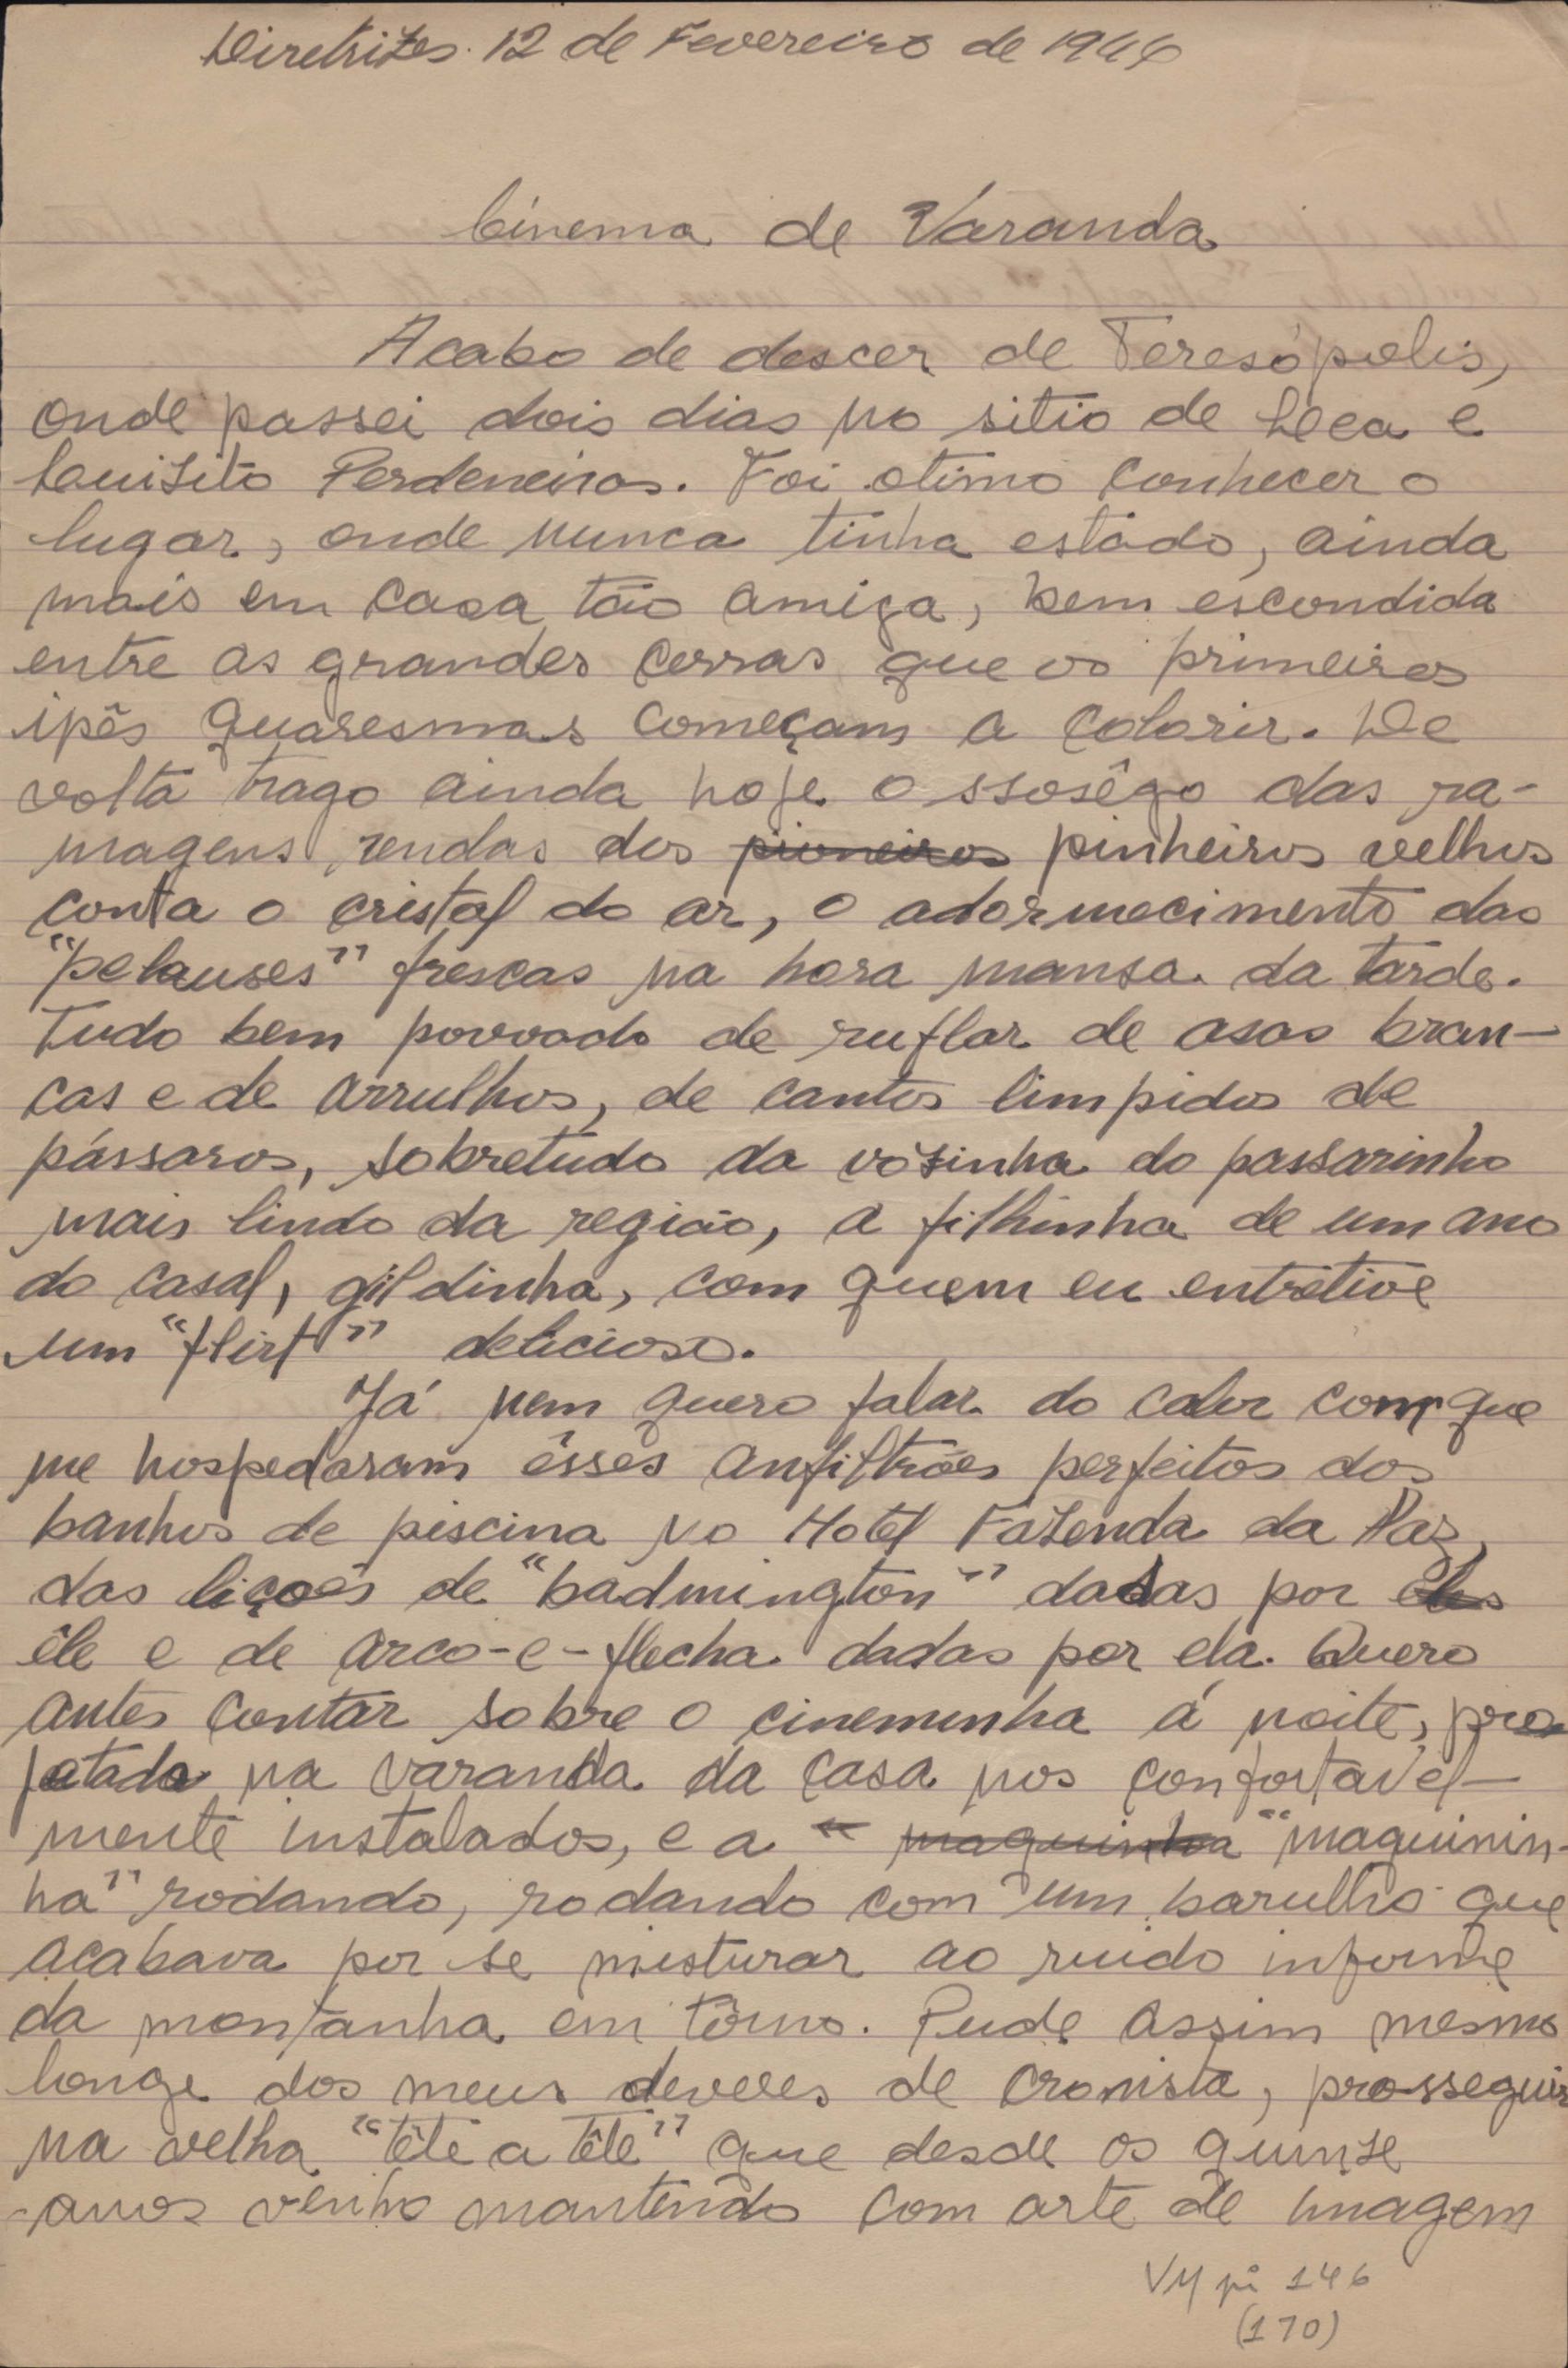 Diretrizes. 12 de Fevereiro de 1946
Cinema de Varanda
Acabo de descer de Teresópolis,
onde passei dois dias no sitio de Leca e
Luizito Perdeneiras. Foi otimo conhecer o
lugar, onde nunca tinha estado, ainda
mais em casa tão amiga, bem escondida
entre as grandes cerras que os primeiros
ipês quaresmas começam a colorir. De
volta trago ainda hoje o ssosêgo das ra-
magens rendas dos pioneiros pinheiros velhos
conta o cristal do ar, o adormecimento das
"pelauses" frescas na hora mansa da tarde.
Tudo bem povoado de ruflar de asas bran-
cas e de arrulhos, de cantos limpidos de
pássaros, sobretudo da vòzinha do passarinho
mais lindo da região, a filhinha de um ano
do casal, gildinha, com quem eu entretive
um "flirt" delicioso.
Já nem quero falar do calor com que
me hospedaram êsses anfiltriões perfeitos dos
banhos de piscina no Hotel Fazenda da Paz,
das liçoês de "badmington" dadas por eles
êle e de arco-e-flecha dadas por ela. Quero
antes contar sobre o cineminha á noite, pro
jetado na varanda da casa nos confortavel-
mente instalados, e a " maquinha "maquinin-
ha" rodando, rodando com um barulho que
acabava por se misturar ao ruido informe
da montanha em tôrno. Pude assim mesmo
longe dos meus deveres de cronista, prosseguir
na velha "tête a tête" que desde os quinze
anos venho mantendo com arte de imagem
VM pi 146
(170)